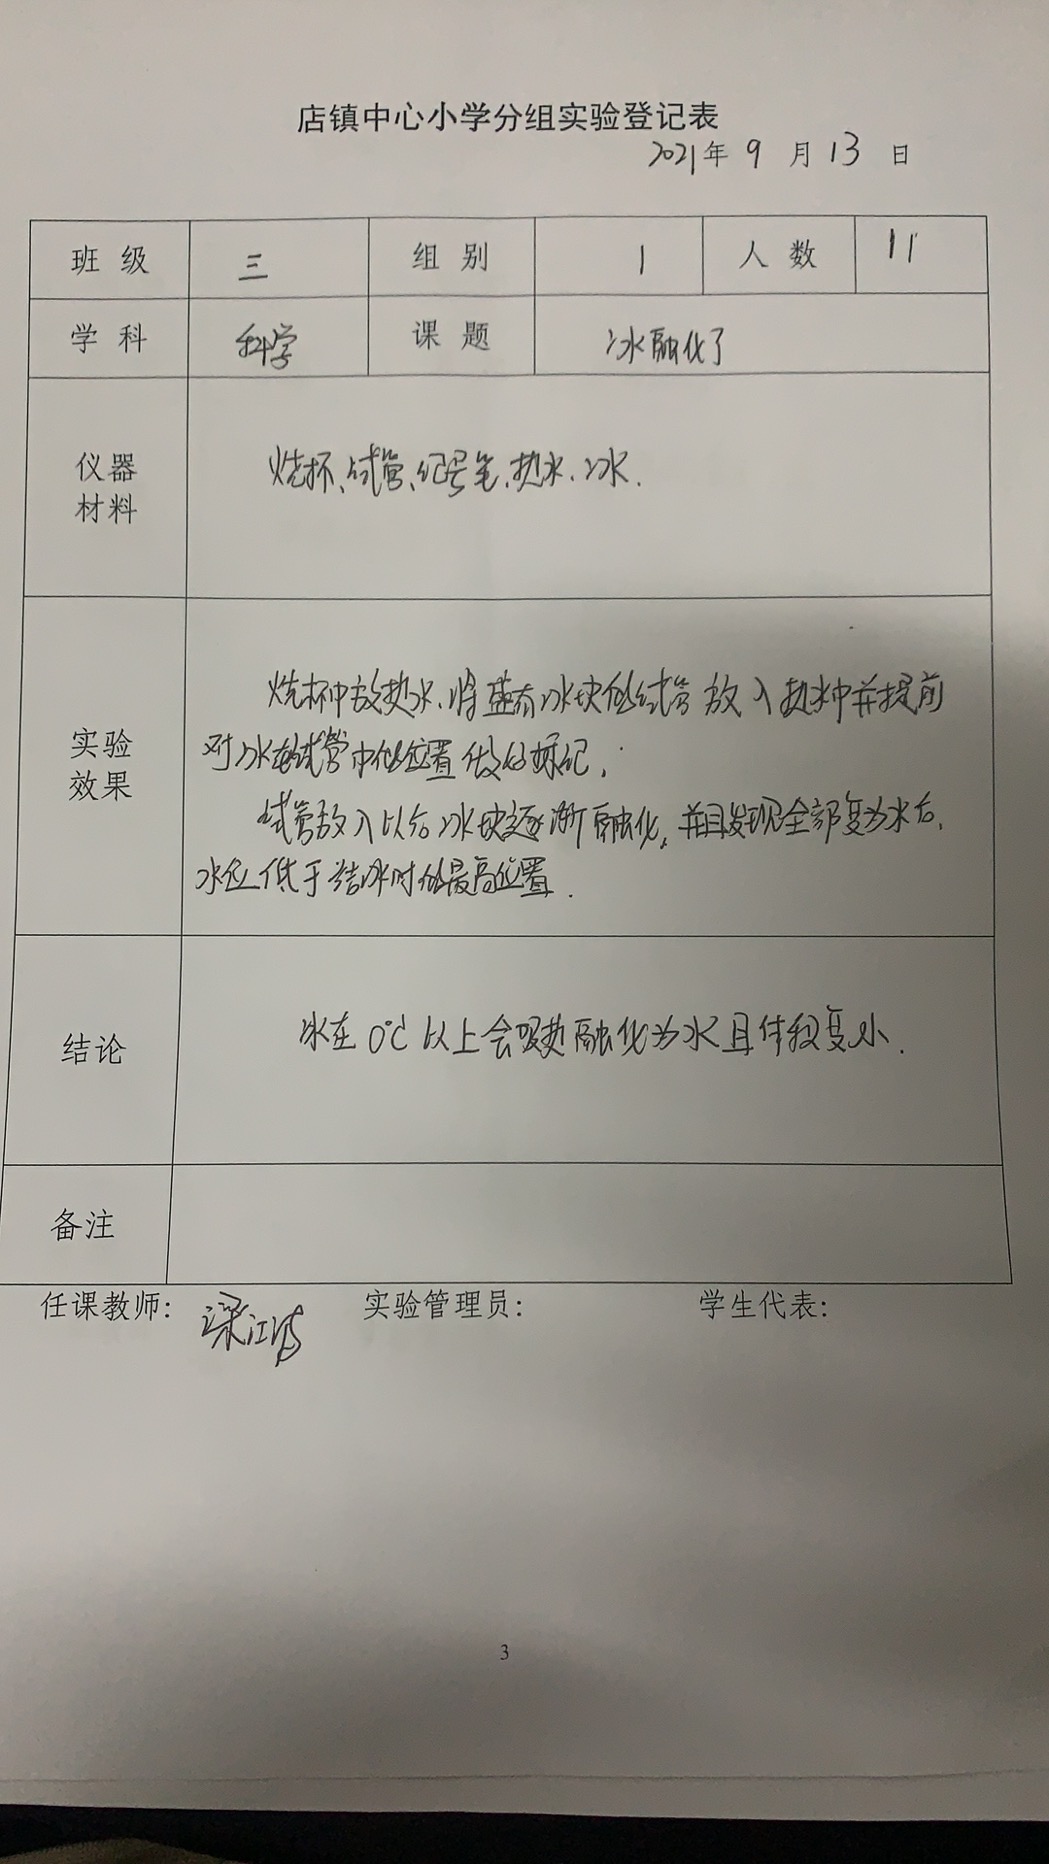 店镇中心小学分组实验登记表
2021年 9 月 13 日
班 级 三 组 别 1 人 数 11
学 科 科学 课 题 冰融化了
仪器
材料
烧杯、试管、记号笔、热水、冰.
实验
效果
烧杯中放热水,将盛有冰块的试管放入热水中并提前
对冰在试管中的位置做好标记.
试管放入以后冰块逐渐融化,并且发现全部变为水后,
水位低于结冰时的最高位置.
结论
冰在0℃以上会吸热融化为水且体积变小.
备注
任课教师: 梁江涛 实验管理员: 学生代表:
3